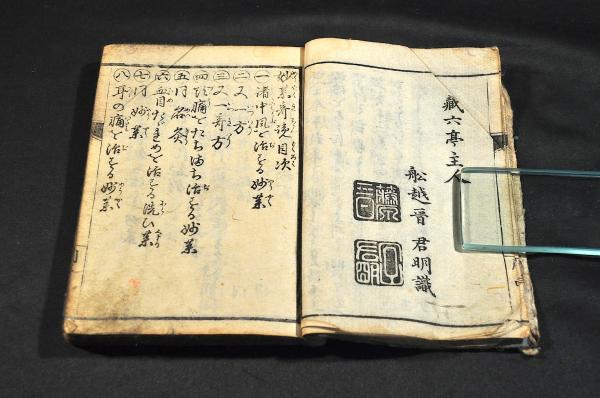 藏六亭主人
舩越晋 君明識
妙薬竒覧目次
一 諸中風を治する妙薬
二 又一方
三 又一竒方
四 頭痛をたちまち治する妙薬
五 同 名灸
六 血目たゞれめを治する洗ひ薬
七 同 妙薬
八 耳の痛を治する妙薬